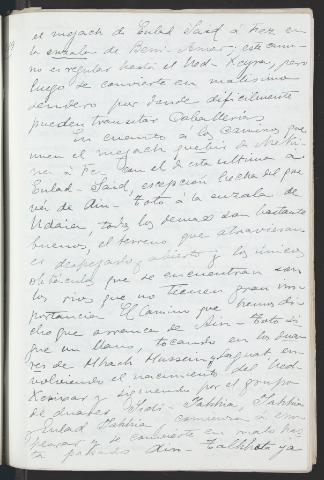 el mejach de Eulad Said á Fez en
la enzala de Beni-Amar; este cami-
no es regular hasta el Ued-Xcyra, pero
luego se convierte en malísimo
sendero por donde dificilmente
pueden transitar caballerías.
En cuanto á los caminos que
unen el mejach quebir de Meki-
nez á Fez con el de esta ultima á
Eulad-Said, escepción hecha del que
vá de Ain-Toto á la enzala de
Udaia, todos los demas son bastante
buenos, el terreno que atraviesan
es despejado y abierto y los únicos
obstáculos que se encuentran son
los rios que no tienen gran im-
portancia. El camino que hemos di-
cho que arranca de Ain-Toto si-
gue un llano, tocando en los dua-
res de Hhach Hussein, en-
volviendo el nacimiento del Ued-
y siguiendo por el grupo
de duares Fahhia
y Eulad Fahhia comienza á em-
peorar y se convierte en malo has-
ta pasado Ain- ya